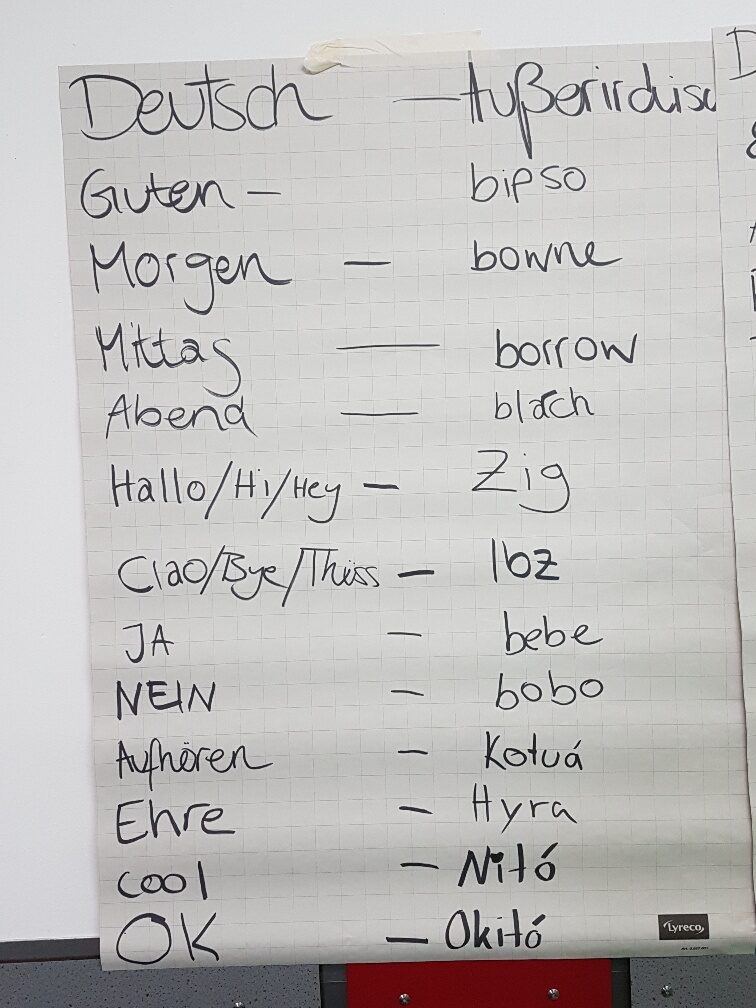 Deutsch — Außerirdisc
Guten — bipso
Morgen — bowne
Mittag — borrow
Abend — blach
Hallo/Hi/Hey — Zig
Ciao/Bye/Thüss — lbz
JA — bebe
NEIN — bobo
Aufhören — Kotuá
Ehre — Hyra
cool — Nitó
OK — Okitó
Lyreco